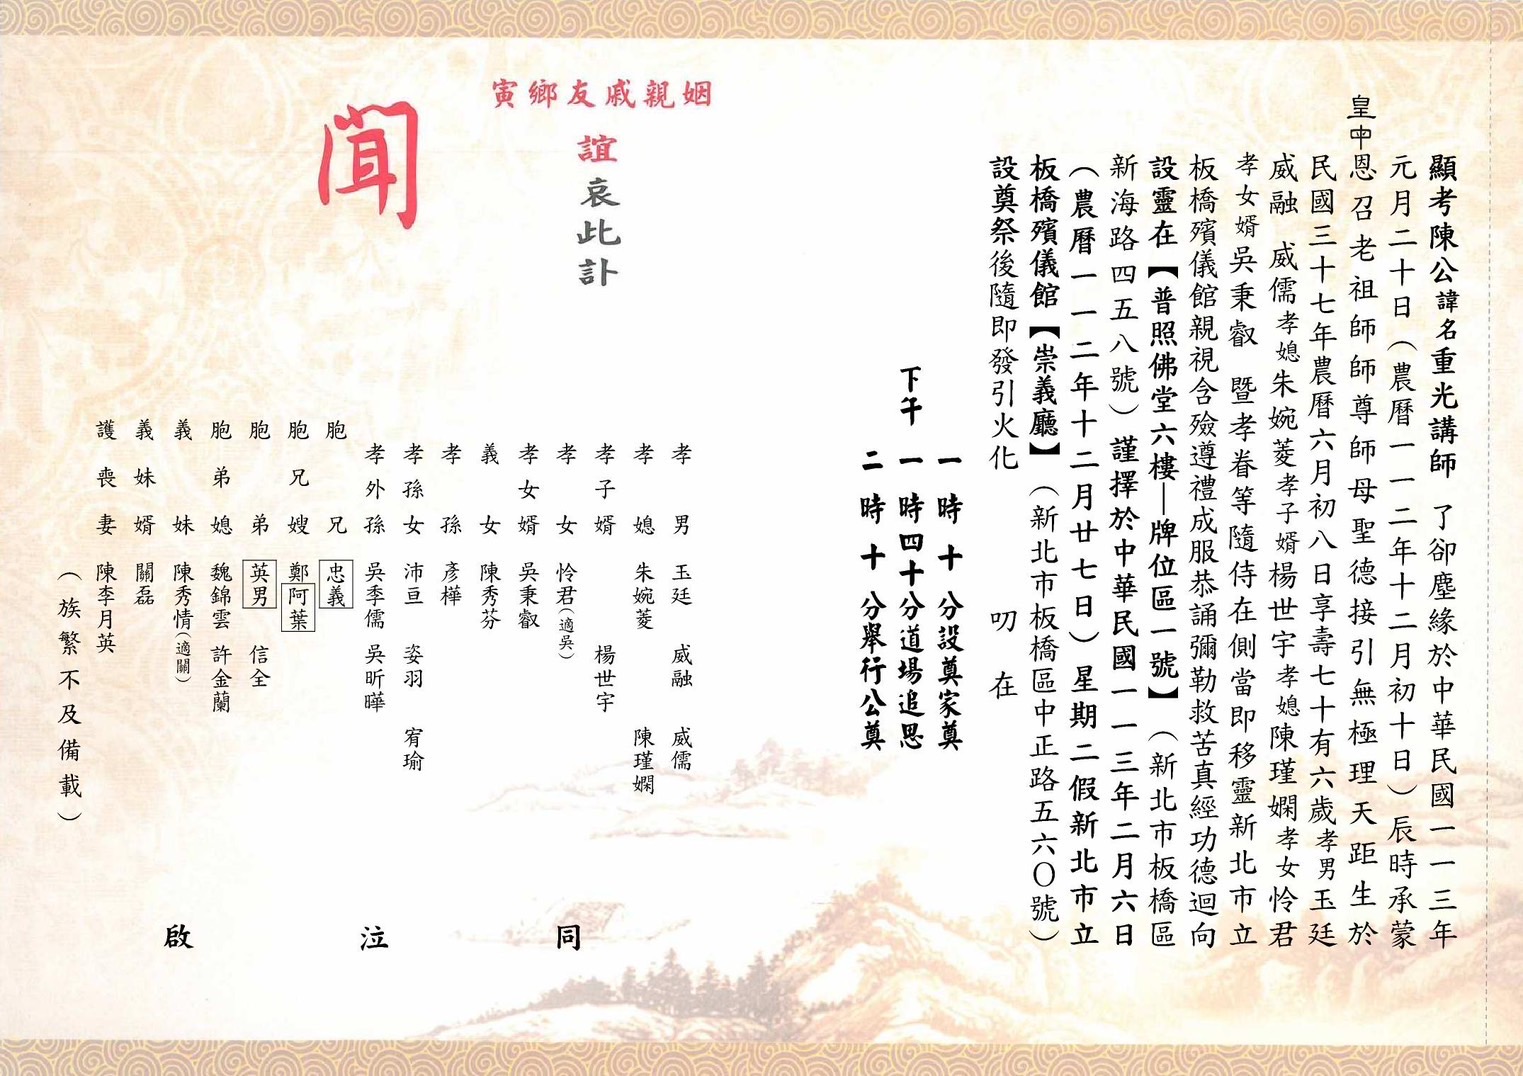 顯考陳公諱名重光講師　了卻塵緣於中華民國一一三年
元月二十日（農曆一一二年十二月初十日）辰時承蒙
皇中恩召老祖師師尊師母聖德接引無極理天距生於
民國三十七年農曆六月初八日享壽七十有六歲孝男玉廷
威融　威儒孝媳朱婉菱孝子婿楊世宇孝媳陳瑾嫻孝女怜君
孝女婿吳秉叡　暨孝眷等隨侍在側當即移靈新北市立
板橋殯儀館親視含殮遵禮成服恭誦彌勒救苦真經功德迴向
設靈在【普照佛堂六樓—牌位區一號】（新北市板橋區
新海路四五八號）謹擇於中華民國一一三年二月六日
（農曆一一二年十二月廿七日）星期二假新北市立
板橋殯儀館【崇義廳】（新北市板橋區中正路五六〇號）
設奠祭後隨即發引火化　叨在
一時十分設奠家奠
下午一時四十分道場追思
二時十分舉行公奠
寅鄉友戚親姻
誼哀此訃
聞
孝男　玉廷　威融　威儒
孝媳　朱婉菱　陳瑾嫻
孝子婿　楊世宇
孝女　怜君（適吳）
孝女婿　吳秉叡
義女　陳秀芬
孝孫　彥樺
孝孫女　沛亘　姿羽　宥瑜
孝外孫　吳李儒　吳昕曄
胞兄　忠義
胞兄嫂　鄭阿葉
胞弟　英男　信全
胞弟媳　魏錦雲　許金蘭
義妹　陳秀情（適關）
義妹婿　關磊
護喪妻　陳李月英
（族繁不及備載）
同泣啟